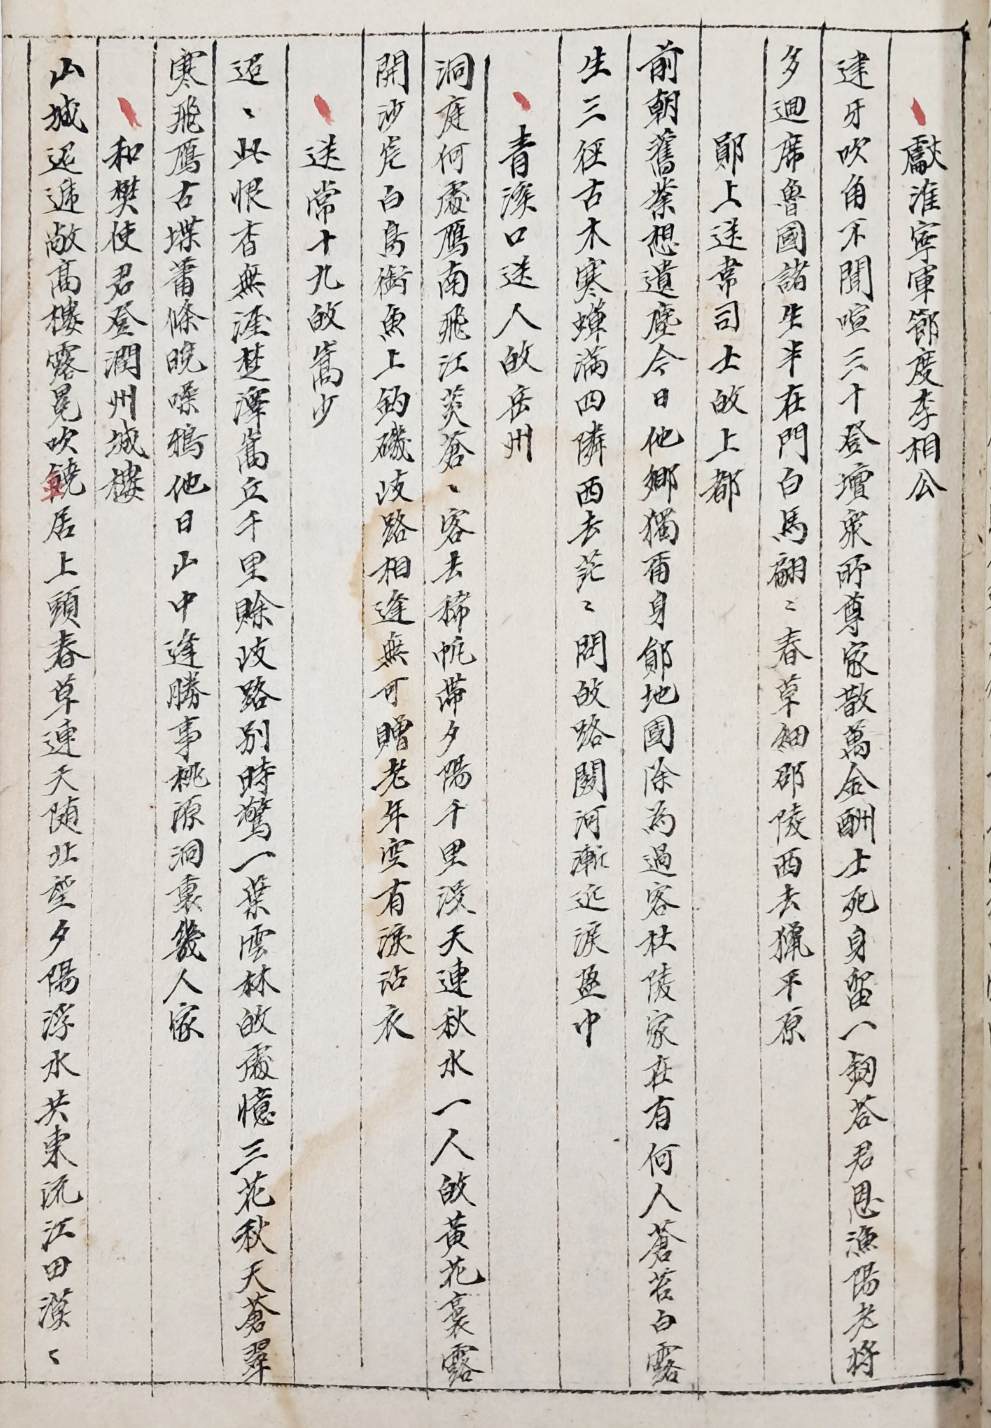 獻淮寧軍節度李相公
建牙吹角不聞喧三十登壇衆所尊家散萬金酬士死身留一劒荅君恩漁陽老將
多迴席魯國諸生半在門白馬翩〻春草細邵陵西去猟平原
鄖上送韋司士㱕上都
前朝舊業想遺塵今日他鄉獨爾身鄖地國除為過客杜陵家在有何人蒼苔白露
生三徑古木寒蟬滿四隣西去茫〻問㱕路關河漸近淚盈巾
青溪口送人㱕岳州
洞庭何處鴈南飛江菼蒼〻客去稀帆帶夕陽千里没天連秋水一人㱕黃花裛露
開沙岸白鳥銜魚上釣磯歧路相逢無可贈老年空有淚沾衣
送常十九㱕嵩少
迢〻此恨杳無涯楚澤嵩丘千里賒歧路別時驚一葉雲林㱕處憶三花秋天蒼翠
寒飛鴈古堞蕭條晚噪鴉他日山中逢勝事桃源洞裏幾人家
和樊使君登潤州城樓
山城迢遞敞高樓露冕吹鐃居上頭春草連天随北望夕陽浮水共東流江田漠〻